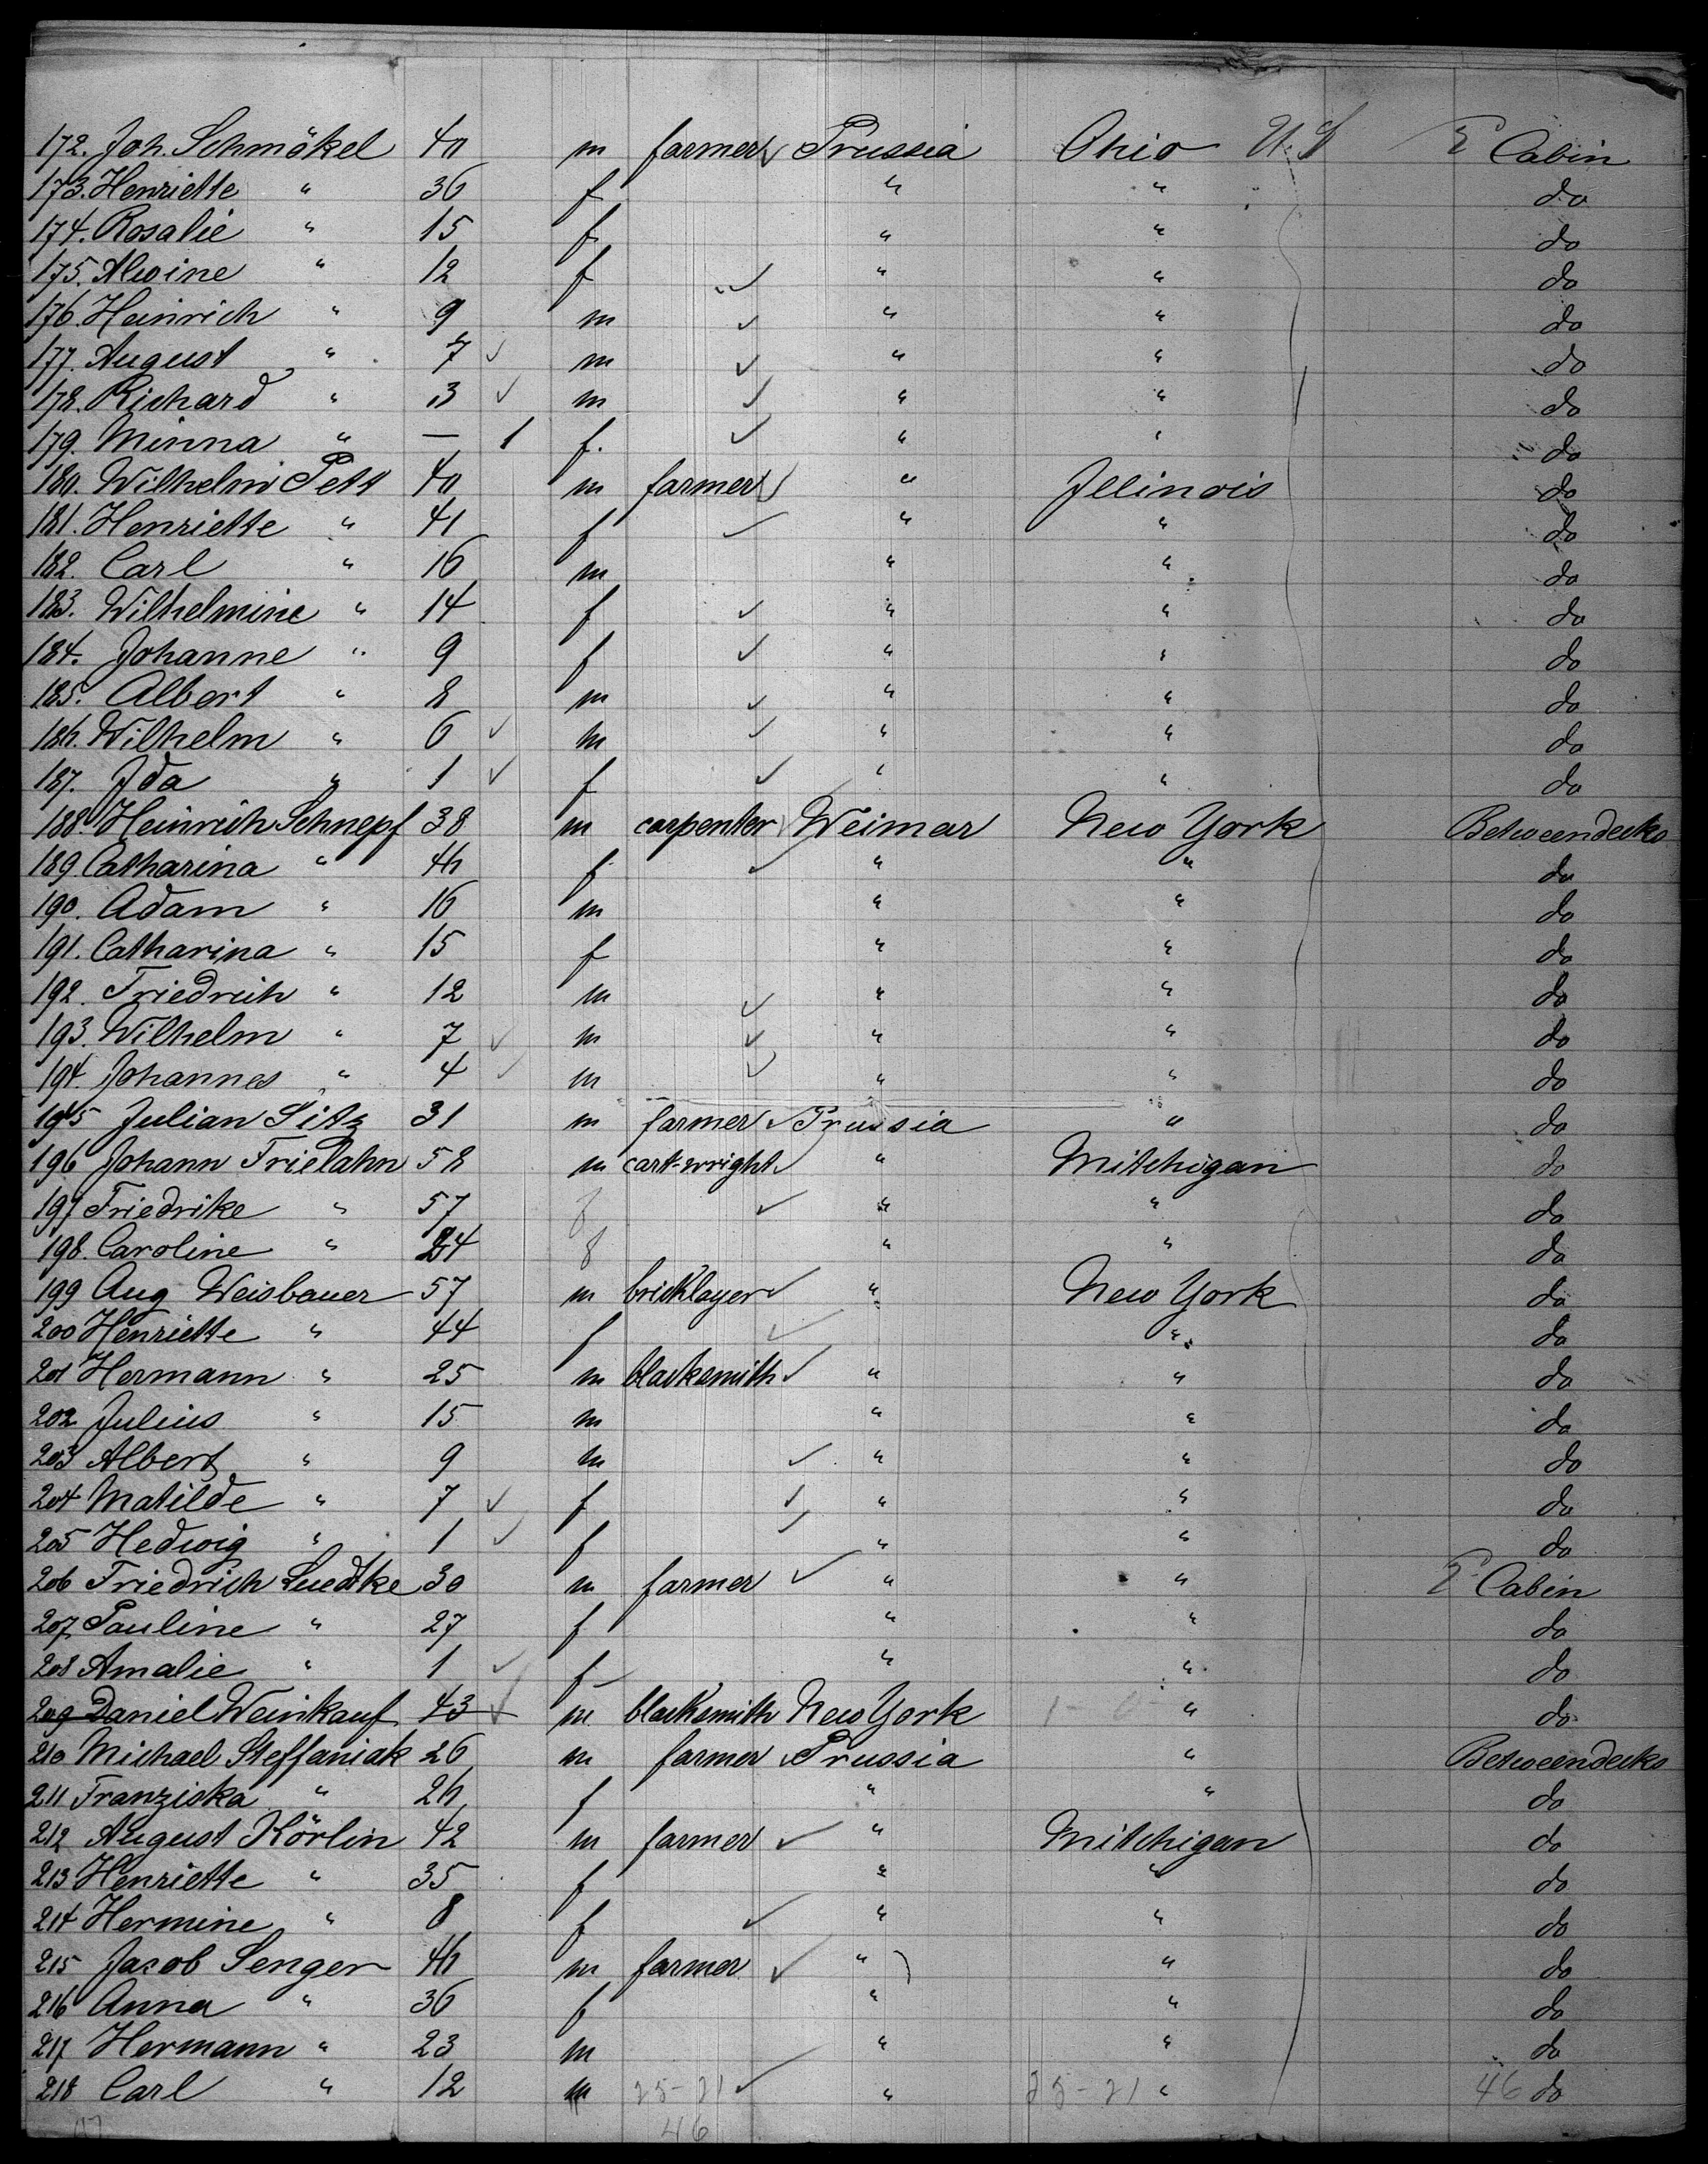 172. Joh. Schmökel 40 m farmer Prussia Ohio U.S Cabin
173. Henriette " 36 f " " do
174. Rosalie " 15 f " " do
175. Alwine " 12 f " " do
176. Heinrich " 9 m " " do
177. August " 7 m " " do
178. Richard " 3 m " " do
179. Minna " — 1 f. " " do
180. Wilhelm Pett 40 m farmer " Jllinois do
181. Henriette " 41 f " " do
182. Carl " 16 m " " do
183. Wilhelmine " 14 f " " do
184. Johanne " 9 f " " do
185. Albert " 8 m " " do
186. Wilhelm " 6 m " " do
187. Jda " 1 f " " do
188. Heinrich Schnepf 38 m carpenter Weimar New York Betweendecks
189 Catharina " f " " do
190. Adam " 16 m " " do
191. Catharina " 15 f " " do
192. Friedrich " 12 m " " do
193. Wilhelm " 7 m " " do
194. Johannes " 4 m " " do
195 Julian Sitz 31 m farmer Prussia " do
196 Johann Frielahn 58 m cart-wright " Mitchigan do
197 Friedrike " 57 f " " do
198. Caroline " 24 f " " do
199 Aug Weisbauer 57 m bricklayer " New York do
200 Henriette " 44 f " " do
201 Hermann " 25 m blacksmith " " do
202 Julius " 15 m " " do
203 Albert " 9 m " " do
204 Matilde " 7 f " " do
205 Hedwig " 1 f " " do
206 Friedrich Luedtke 30 m farmer " " Cabin
207 Pauline " 27 f " " do
208 Amalie " 1 f " " do
209 Daniel Weinkauf 43 m blacksmith New York " do
210 Michael Steffaniak 26 m farmer Prussia " Betweendecks
211 Franziska " f " " do
212 August Körlin 42 m farmer " Mitchigan do
213 Henriette " 35 f " " do
214 Hermine " 8 f " " do
215 Jacob Senger m farmer " " do
216 Anna " 36 f " " do
217 Hermann " 23 m " " do
218 Carl " 12 m 25-21 " 25-21 " 46 do
46